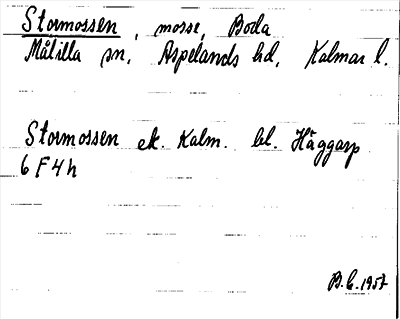 Stormossen, mosse, Boda
Målilla sn, Aspelands hd, Kalmar l.
Stormossen ek. Kalm. bl. Häggarp
6 F 4 h
B.E. 1957